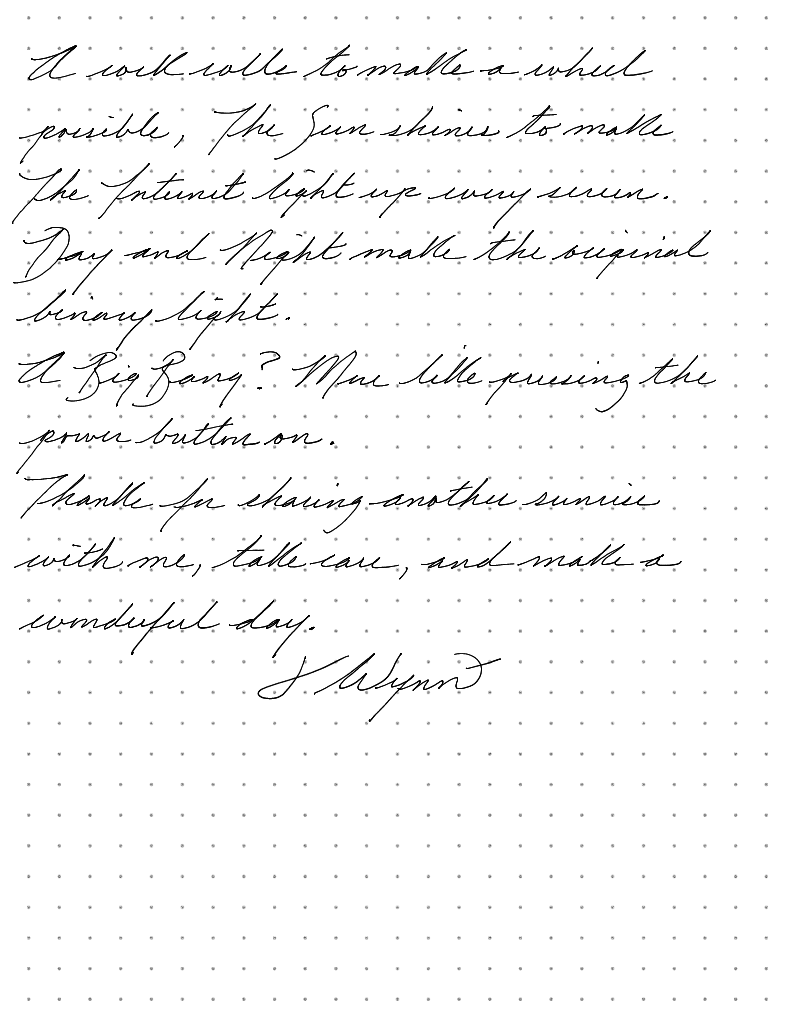 A rock rolls to make a wheel
possible, The Sun shines to make
The Internet light up every screen.
Day and Night make the original
binary light.
A Big Bang? More like pressing the
power button on.
Thanks for sharing another sunrise
with me, take care, and make a
wonderful day.
Wynn